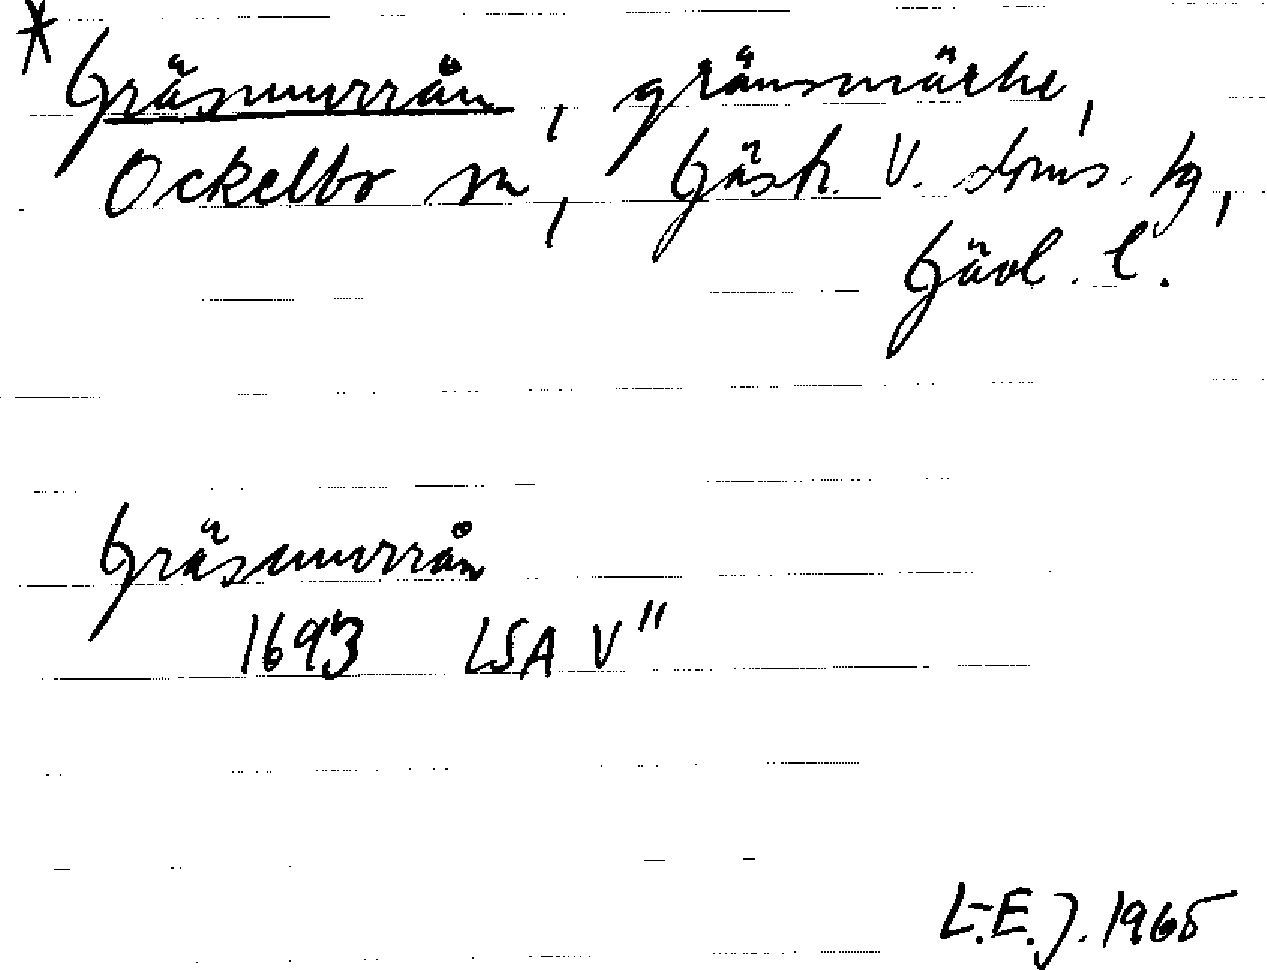 * Gräsmurrån, gränsmärke,
Ockelbo sn, Gästr. V. doms. tg,
Gävl. l.
Gräsmurrån
1693 LSA V"
L.E.J. 1965